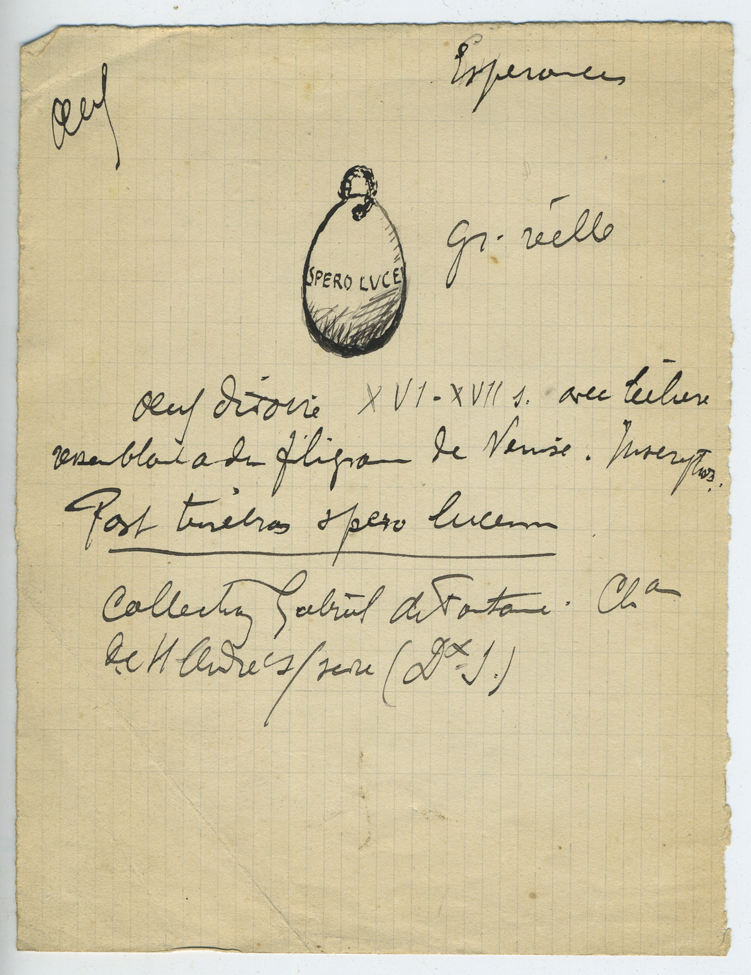 Esperance
œuf
SPERO LUCE
Gr. réelle
œuf d'ivoire XVI-XVII s. avec bélière
ressemblant a du filigrane de Venise. Inscription.
Post tenebras spero lucem
Collection Gabriel de Fontaine. Ch au
de St André s/sèvre (Dx S.)